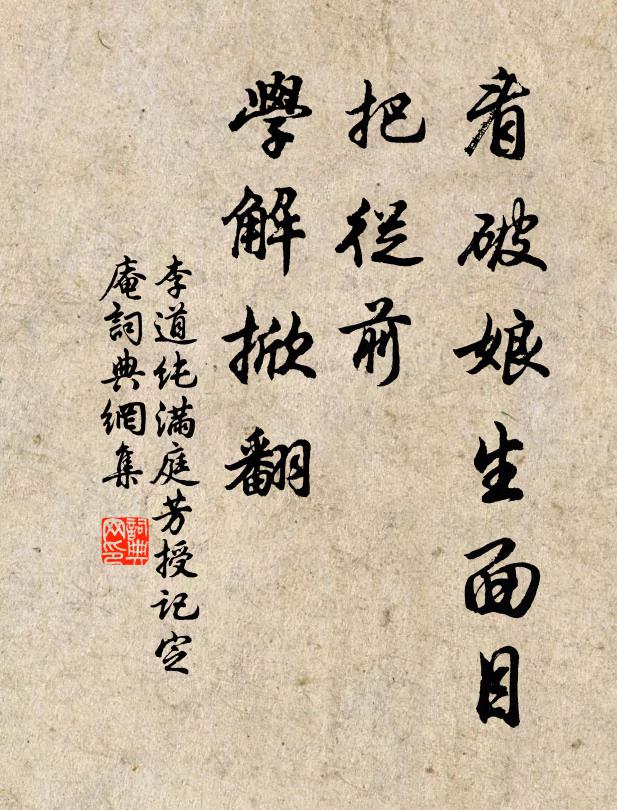 看破娘生面目
把從前
學解掀翻
李道純滿庭芳授記定
庵詞典網集
詞典
网印